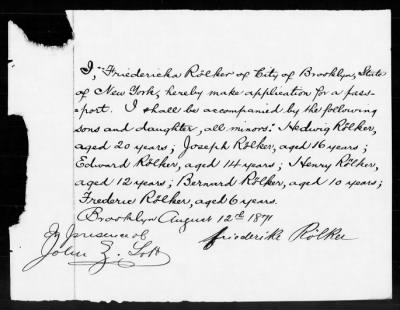 I, Friedericka Rölker of City of Brooklyn, State
of New York, hereby make application for a pass-
port. I shall be accompanied by the following
sons and daughter, all minors: Hedwig Rölker,
aged 20 years; Joseph Rölker, aged 16 years;
Edward Rölker, aged 14 years; Henry Rölker,
aged 12 years; Bernard Rölker, aged 10 years;
Frederic Rölker, aged 6 years.
Brooklyn August 12th 1871
In presence of
friederike Rölker
John Z. Lott